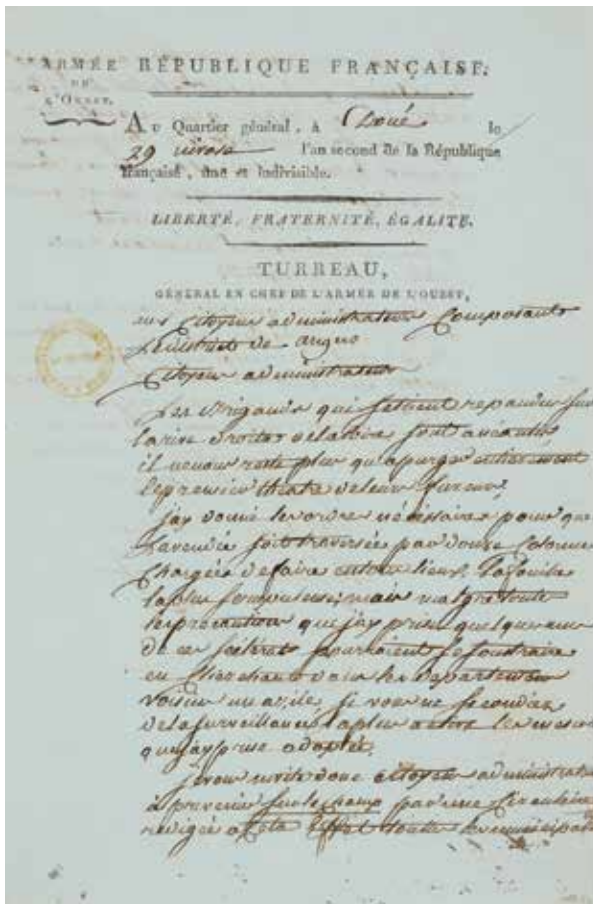 ARMÉE RÉPUBLIQUE FRANÇAISE.
DE
L'OUEST.
AU Quartier général, à Doué le
29 nivose l'an second de la République
française, une et indivisible.
LIBERTÉ, FRATERNITÉ, ÉGALITÉ.
TURREAU,
GÉNÉRAL EN CHEF DE L'ARMÉE DE L'OUEST,
aux Citoyens administrateurs Composants
le district de angers
Citoyens administrateurs
Les Brigands qui setoient repandus sur
la rive droite de la loire sont aneantis
il ne nous reste plus qu'a purger entierement
le premier théatre de leurs fureurs,
jay donné les ordres nécéssaires pour que
la vendée soit traversée par douze Colonnes
Chargées de faire en tous lieux, la fouille
la plus scrupuleuse; mais malgré toute
les précautions que jay prises quelques uns
de ces scélérats pourroient se soustraire
en cherchant dans les départements
voisins un azile, si vous ne secondiez
de la surveillance la plus active les mesures
que jay prise adoptées.
je vous invite donc Citoyens administrateurs
à prévenir sur le champ par une Circulaire
redigée a Cet Effet toutes les municipalités